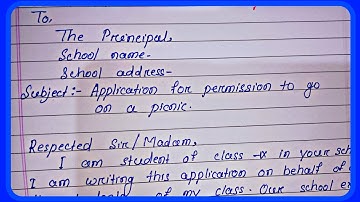 To,
The Preincipal,
School name-
School address-
Subject:- Application for permission to go
on a picnic.
Respected Sir/Madam,
I am student of class -x in your
I am writing this application on behalf of
of my class. Our school